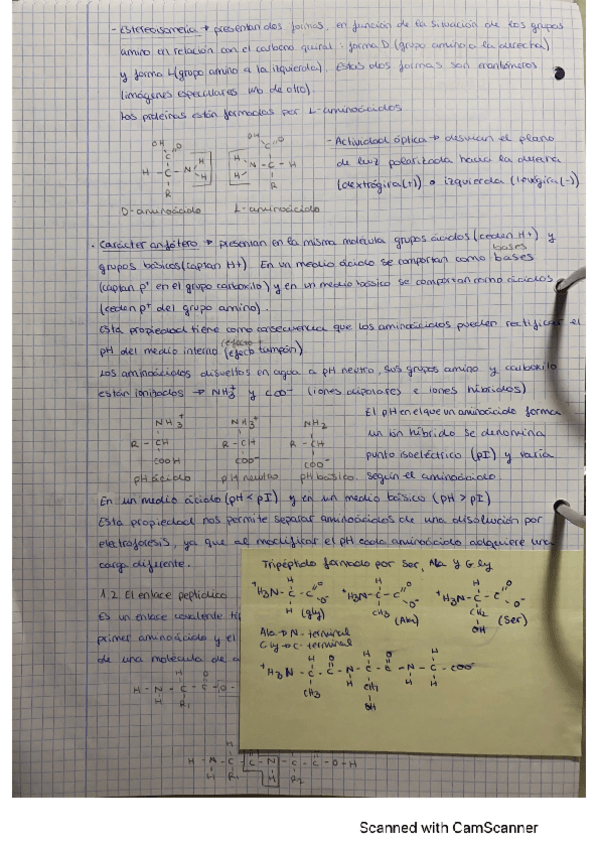 - Estereoisomería → presentan dos formas, en función de la situación de los grupos
amino en relación con el carbono quiral: forma D (grupo amino a la derecha)
y forma L (grupo amino a la izquierda). Estas dos formas son enantiómeros
(imágenes especulares uno de otro).
Las proteínas están formadas por L-aminoácidos
- Actividad óptica → desvían el plano
de luz polarizada hacia la derecha
(dextrógira(+)) o izquierda (levógira(-))
OH O
C
H - C - N H H
R
OH O
C
H H N - C - H
R
D-aminoácido L-aminoácido
· Carácter anfótero → presentan en la misma molécula grupos ácidos (ceden H+) y
grupos básicos (captan H+). En un medio ácido se comportan como bases bases
(captan p+ en el grupo carboxilo) y en un medio básico se comportan como ácidos
(ceden p+ del grupo amino).
Esta propiedad tiene como consecuencia que los aminoácidos pueden rectificar el
pH del medio interno (efecto tampón)
Los aminoácidos disueltos en agua a pH neutro, sus grupos amino y carboxilo
están ionizados → NH3+ y COO- (iones dipolares e iones híbridos)
NH3+ NH3+ NH2
R - CH R - CH R - CH
COOH COO- COO-
pH ácido pH neutro pH básico.
El pH en el que un aminoácido forma
un ión híbrido se denomina
punto isoeléctrico (pI) y varía
según el aminoácido
En un medio ácido (pH < pI) y en un medio básico (pH > pI)
Esta propiedad nos permite separar aminoácidos de una disolución por
eletroforesis, ya que al modificar el pH cada aminoácido adquiere una
carga diferente.
1.2. El enlace peptídico
Es un enlace covalente
primer aminoácido y el
de una molécula de
H - N - C - C - O -
H R1
H - N - C - C - N - C - C - O - H
H R1 H R2
Tripéptido formado por Ser, Ala y Gly
+H3N - C - C O O- +H3N - C - C O O- +H3N - C - C O O-
H (Gly) CH3 (Ala) CH2 (Ser)
OH
Ala → N-terminal
Gly → C-terminal
+H3N - C - C - N - C - C - N - C - COO-
CH3 H CH2 H H
OH
Scanned with CamScanner